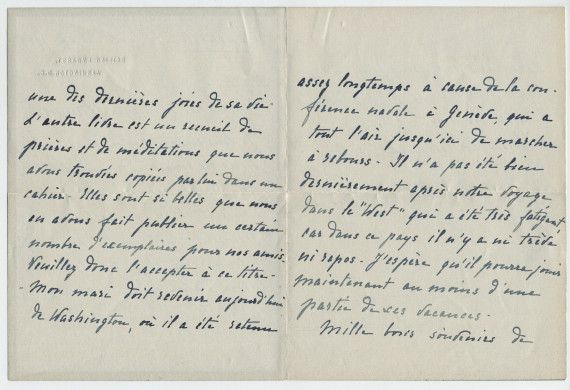 une des dernières joies de sa vie.
L'autre livre est un recueil de
prières et de méditations que nous
avons trouvées copiées par lui dans un
cahier. Elles sont si belles que nous
en avons fait publier un certain
nombre d'exemplaires pour nos amis.
Veuillez donc l'accepter à ce titre.
- Mon mari doit revenir aujourd'hui
de Washington, où il a été retenu
assez longtemps à cause de la con-
férence navale à Genève, qui a
tout l'air jusqu'ici de marcher
à rebours. Il n'a pas été bien
dernièrement après notre voyage
dans le "West" qui a été très fatigant,
car dans ce pays il n'y a ni trève
ni repos. J'espère qu'il pourra jouir
maintenant au moins d'une
partie de ses vacances.
Mille bons souvenirs de